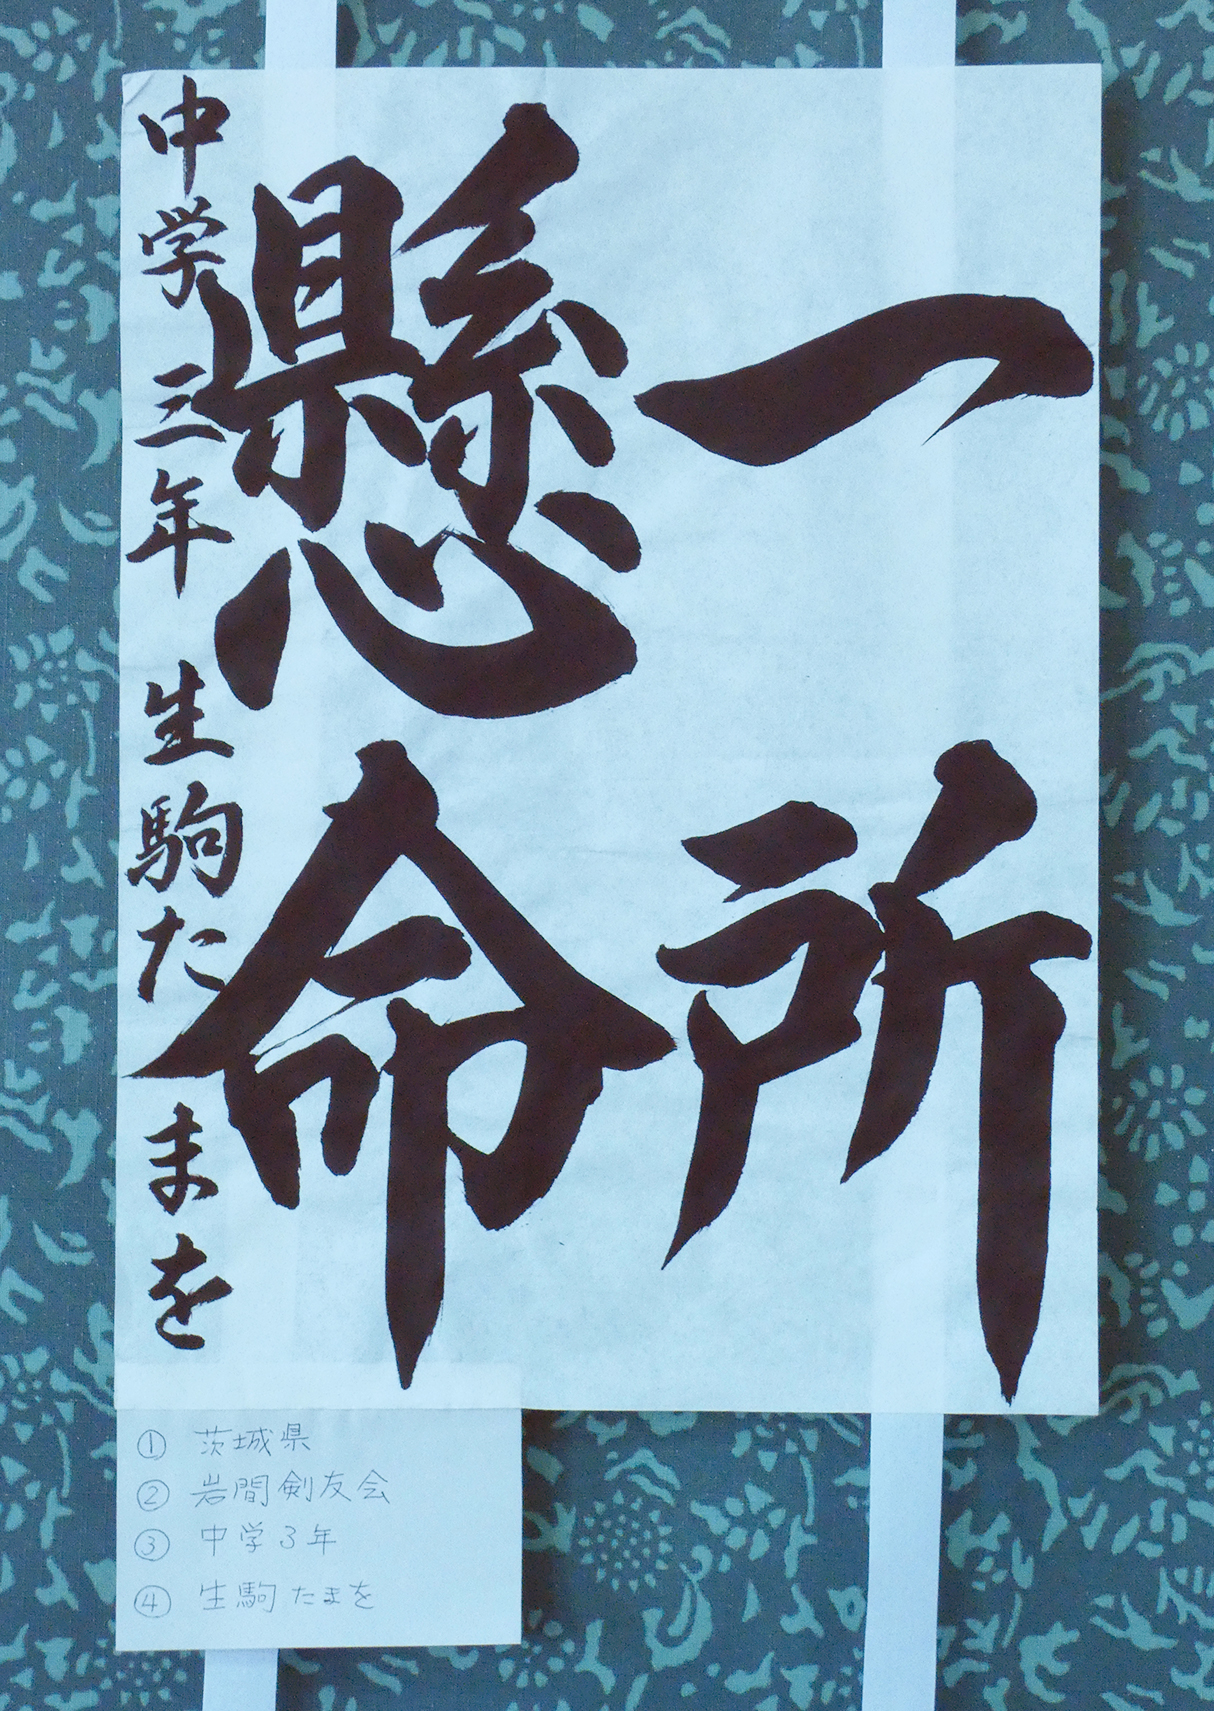 一所
懸命
中学三年 生駒たまを
① 茨城県
② 岩間剣友会
③ 中学3年
④ 生駒たまを